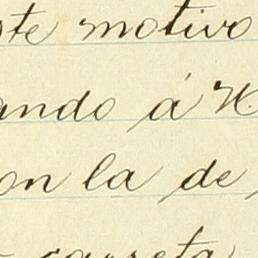 ste motivo
ando á H.
on la de
carreta